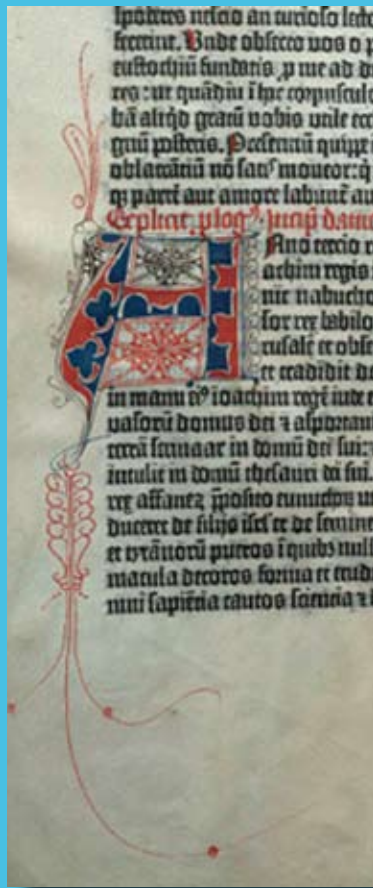 spōdētes nescio an curioso lecto
fecerint. Unde obsecro vos o p
eustochiū fundatis p me ad d
res: ut quādiu ī hoc corpusculo
bā aliqd gratū vobis utile ecc
gnū posteris. Presentiū quippe
oblatratiū nō satis moveor: q
q; partē aut amore labunt au
Explicit plog⁹. Incipit dani
Anno tercio r
achim regis
nit nabucho
sor rex babilo
rusalē et obse
et tradidit do
in manu ei⁹ ioachim regē iude e
vasorū domus dei ⁊ asportavi
terrā sennaar in domū dei sui:
intulit in domū thesauri dei sui.
rex affanez p̄posito eunuchoꝝ u
duceret de filijs isrl et de semine
et tyrānorū pueros ī quibꝫ null
macula decoros forma et erudi
mni sapiētia cautos sciencia ⁊